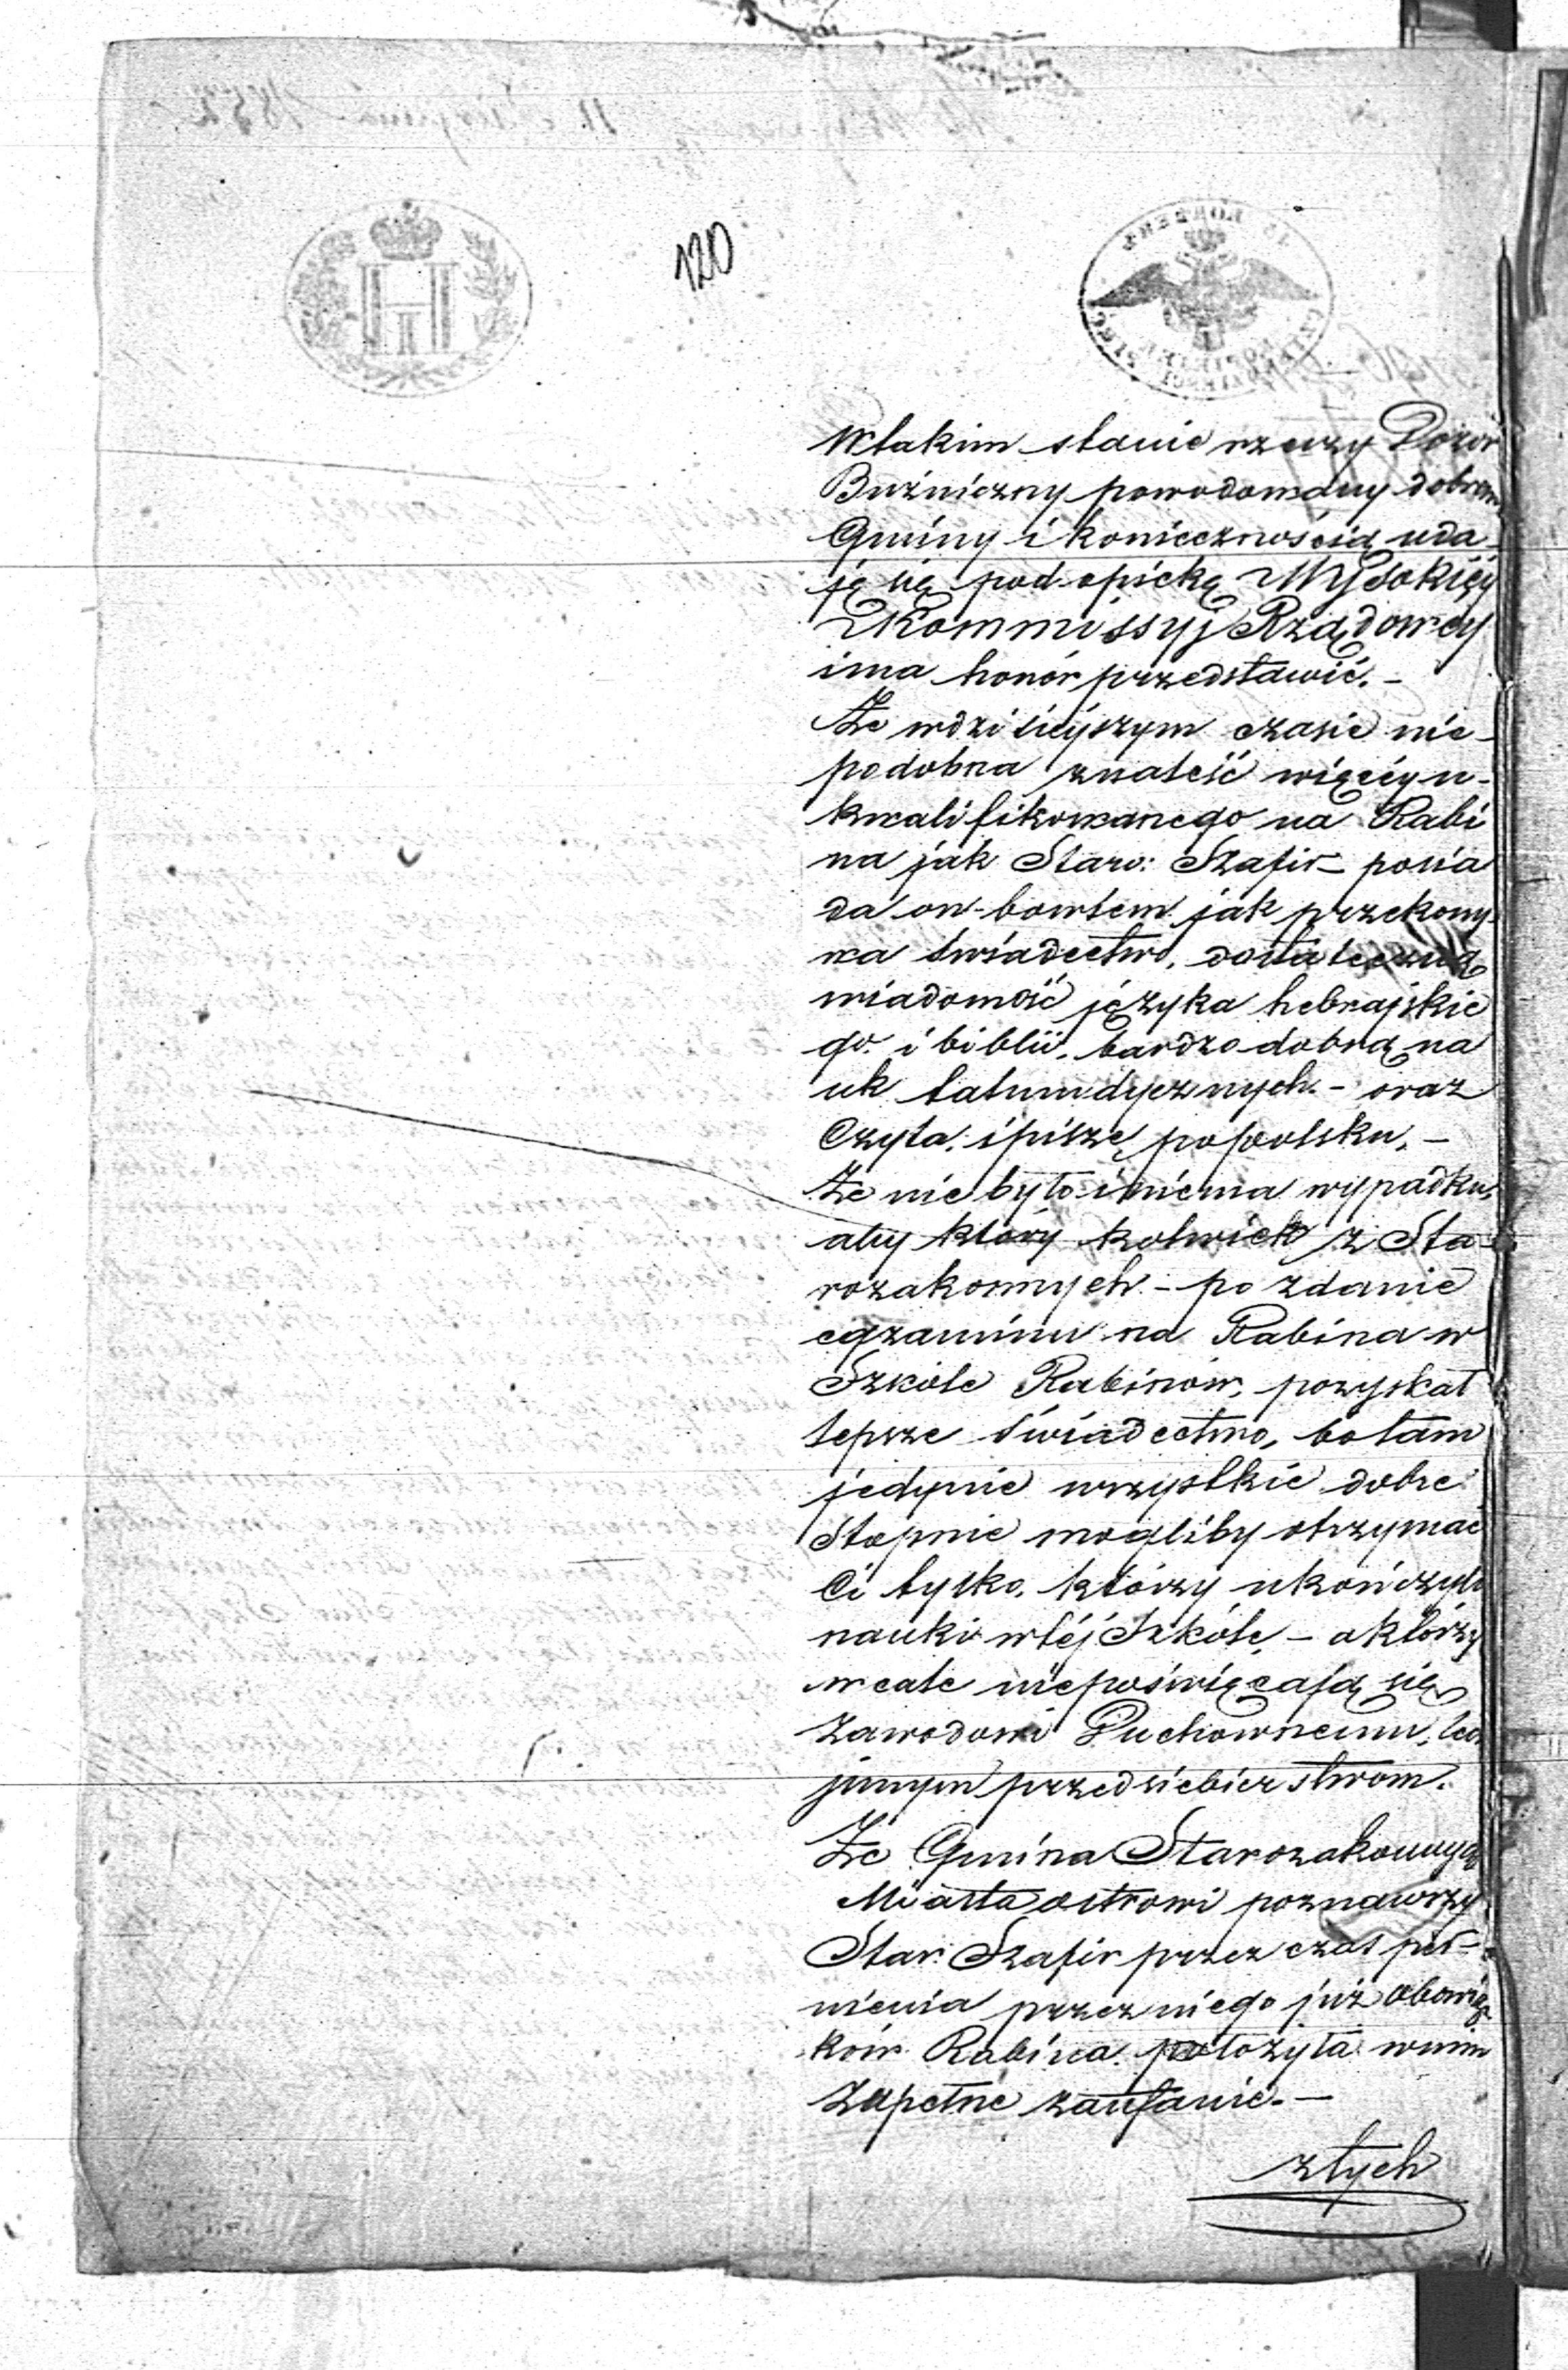 120
W takim stanie rzeczy Dozór
Bużniczny powodowany dobrem
Gminy i koniecznością uda-
ję się pod opiekę Wysokiéy
Kommissyj Rządowéy
i ma honór przedstawić. –
Że w dzisiéyszym czasie nie-
podobna znaleść więcéy u-
kwalifikowanego na Rabi
na jak Staro: Szafir – posia
da on bowiem jak przekony-
wa świadectwo, dostateczną
wiadomość języka hebrajskie
go i biblii, bardzo dobrą na
uk talmudycznych. – oraz
Czyta i piszę po polsku. –
Że nie było i niema wypadku,
aby który kolwiek z Sta-
rozakonnych – po zdanie
egzaminu na Rabina w
Szkole Rabinów, pozyskał
lepsze świadectwo, bo tam
jedynie wszystkie dobre
Stopnie mogliby otrzymać
Ci tylko, którzy ukończyli
nauki w téj Szkóle, – a którzy
wcale niepoświęcają się
Zawodowi Duchownemu, lecz
jnnym przedsiebierstwom.
Że Gmina Starozakonnych
Miasta Ostrowi poznawszy
Star. Szafir przez czas peł-
nienia przez niego już obowiąz
ków Rabina położyła w nim
Zupełne zaufanie. –
z tych